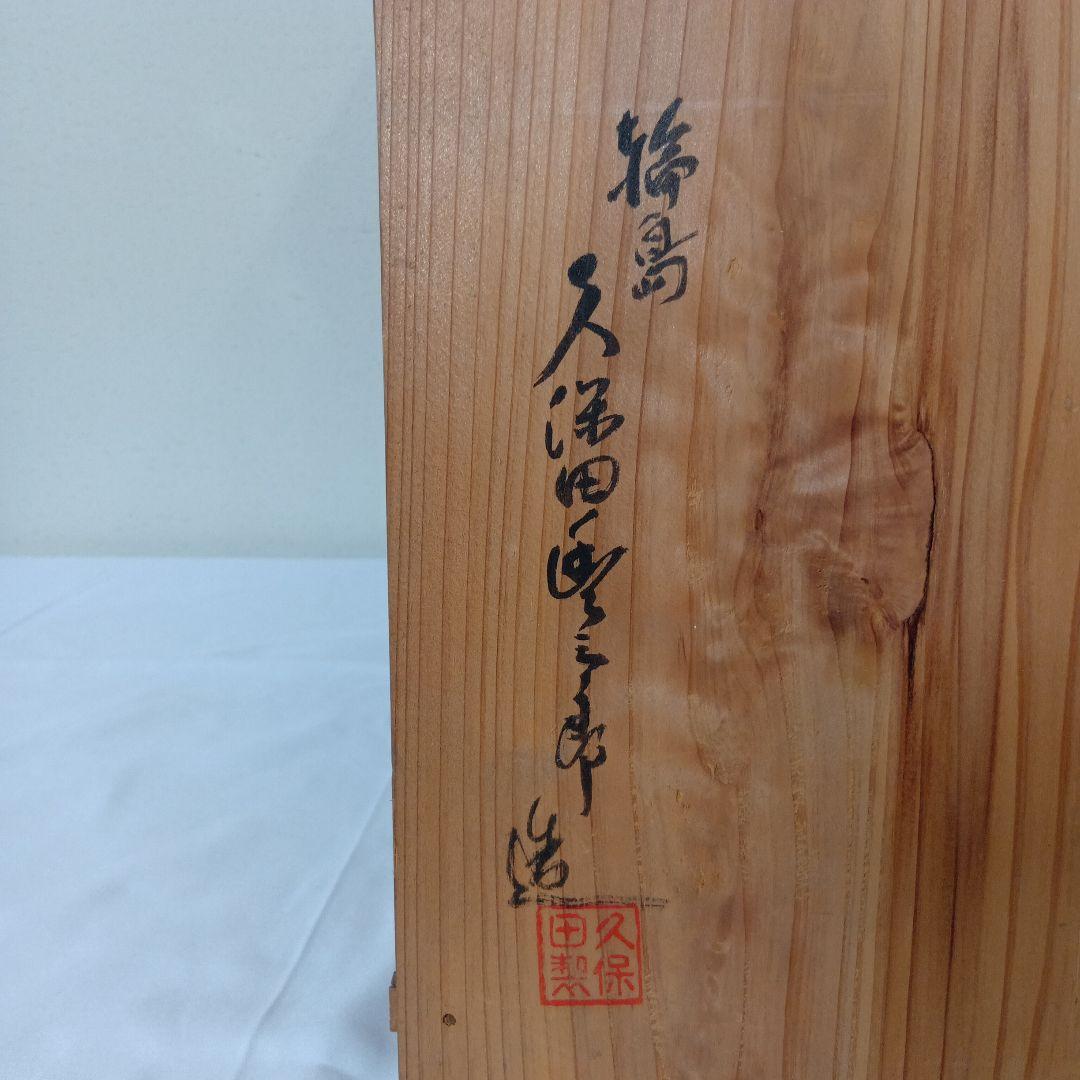 輪島
久保田豊三郎
造
久保
田製